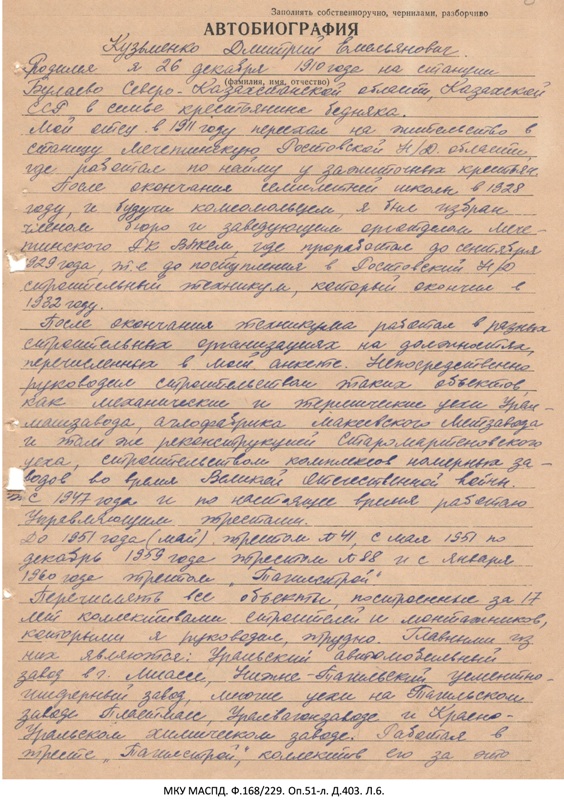 Заполнять собственноручно, чернилами, разборчиво
АВТОБИОГРАФИЯ
Кузьменко Дмитрий Емельянович.
(фамилия, имя, отчество)
Родился я 26 декабря 1910 года на станции
Булаево Северо-Казахстанской области, Казахской
ССР в семье крестьянина бедняка.
Мой отец в 1911 году переехал на жительство в
станицу Мечетинскую Ростовской Н/Д. области,
где работал по найму у зажиточных крестьян.
После окончания семилетней школы в 1928
году, и будучи комсомольцем, я был избран
членом бюро и заведующим орготделом Мече-
тинского РК ВЛКСМ где проработал до сентября
1929 года, т.е до поступления в Ростовский Н/Д
строительный техникум, который окончил в
1932 году.
После окончания техникума работал в разных
строительных организациях на должностях,
перечисленных в моей анкете. Непосредственно
руководил строительством таких объектов,
как механические и термические цехи Урал-
машзавода, аглофабрика Макеевского Метзавода
и там же реконструкцией Старомартеновского
цеха, строительством комплексов номерных за-
водов во время Великой Отечественной войны.
С 1947 года и по настоящее время работаю
Управляющим трестами.
До 1951 года (май) трестом №41, с мая 1951 по
декабрь 1959 года трестом №88 и с января
1960 года трестом „Тагилстрой“
Перечислять все объекты, построенные за 17
лет коллективами строителей и монтажников,
которыми я руководил, трудно. Главными из
них являются: Уральский автомобильный
завод в г. Миассе, Нижне-Тагильский цементно-
шиферный завод, многие цехи на Тагильском
заводе Пластмасс, Уралвагонзаводе и Красно-
Уральском химическом заводе. Работая в
тресте „Тагилстрой“, коллектив его за это
МКУ МАСПД. Ф.168/229. Оп.51-л. Д.403. Л.6.